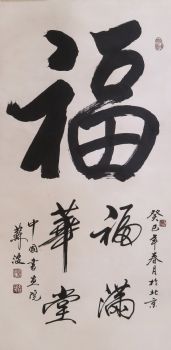 福
福滿
華堂
癸巳年春月於北京
中國書画院
蘇波